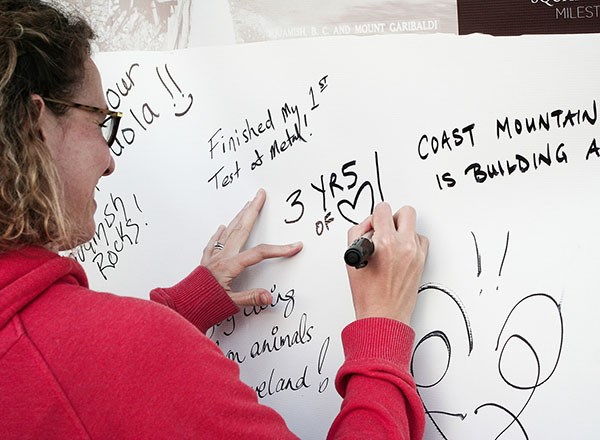 SQUAMISH, B.C. AND MOUNT GARIBALDI
MILEST
our
ola !!
Finished My 1st
Test at Metal!
3 YRS
OF
COAST MOUNTAIN
IS BUILDING A
Rocks!
on animals
eland!